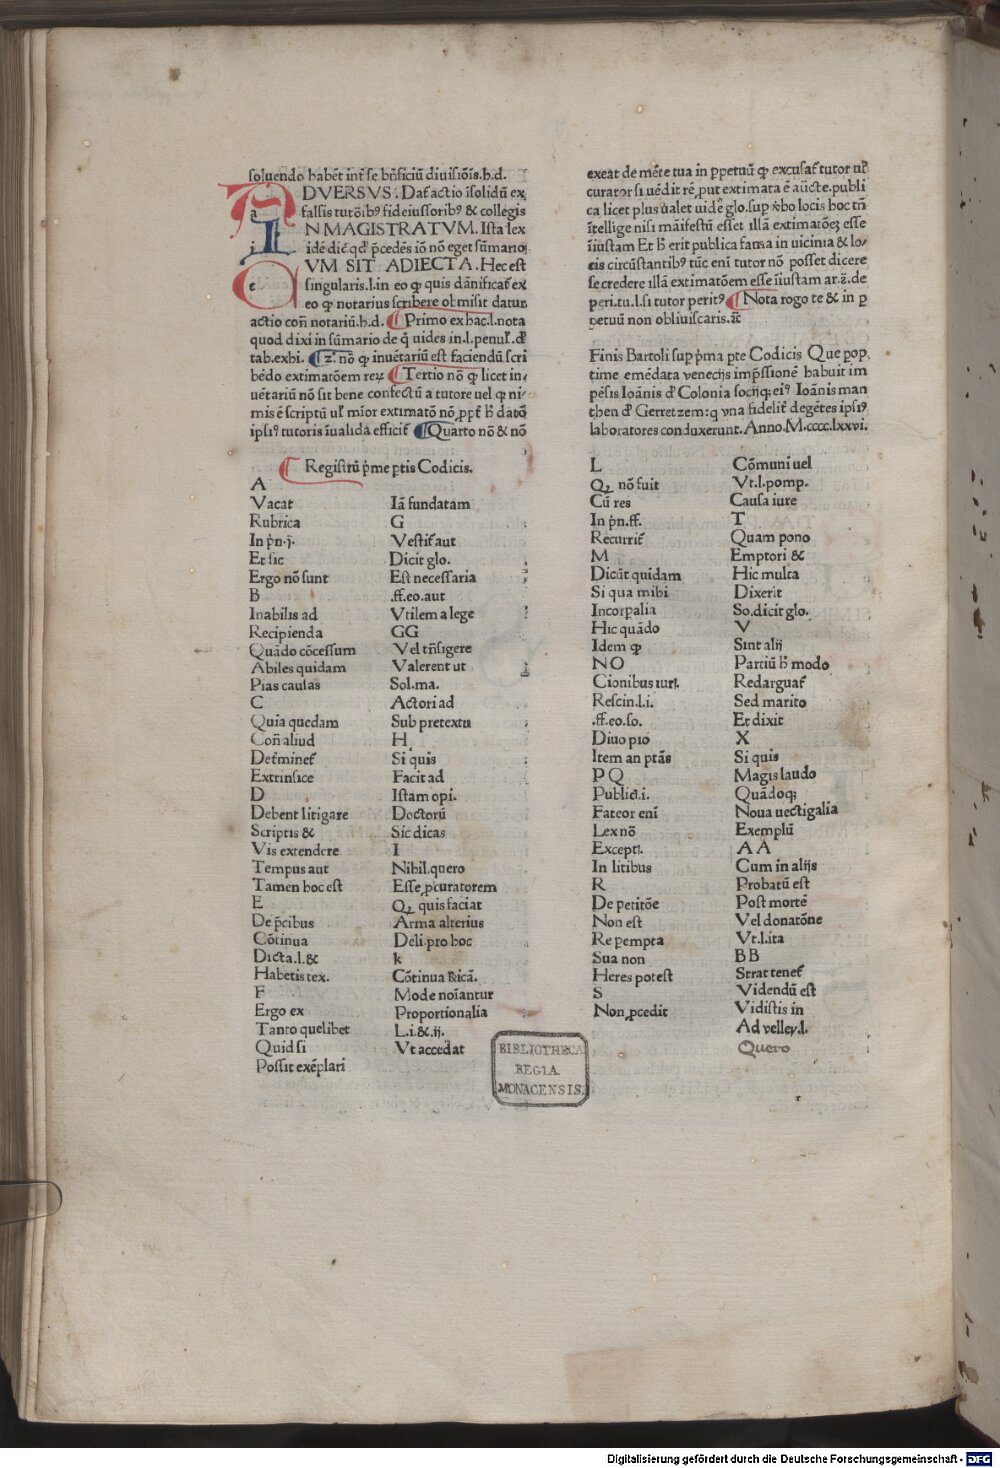 soluendo habēt int̄ se bn̄ficiū diuisiōis.h.d.
ADVERSVS. Dat̄ actio īsolidū ex
falsis tutōibꝰ fideiussoribꝰ & collegis
IN MAGISTRATVM. Ista lex
idē dic̄ qd̓ p̄cedēs iō nō eget sūmario
CVM SIT ADIECTA. Hec est
singularis.l.in eo ꝙ quis dānificat̄ ex
eo ꝙ notarius scribere obmisit datur
actio con̄ notariū.h.d. Primo ex hac.l.nota
quod dixi in sūmario de q̄ uides in.l.penul̓.d̓
tab.exhi. 2̄. nō ꝙ inuētariū est faciendū scri
bēdo extimatōem reꝝ Tertio nō ꝙ licet in
uētariū nō sit bene confectū a tutore uel ꝙ ni
mis ē scriptū ul̓ mior extimatō nō ꝓpt̄ h̓ datō
ipsiꝰ tutoris īualida efficit̄ Quarto nō & nō
exeat de mēte tua in ꝑpetuū ꝙ excusat̄ tutor ul̓
curator si uēdit rē ꝓut extimata ē aūcte.publi
ca licet plus ualet uide glo.suꝑ v̓bo locis hoc tn̄
ītellige nisi māifestū esset illā extimatōeꝫ esse
īiustam Et h̓ erit publica fama in uicinia & lo
cis circūstantibꝰ tūc eni tutor nō posset dicere
se credere illā extimatōem esse īiustam ar.2̄.de
peri.tu.l.si tutor peritꝰ Nota rogo te & in ꝑ
petuū non obliuiscaris.⁊c̄
Finis Bartoli suꝑ p̄ma ꝑte Codicis Que ꝑop
time emēdata venecijs imp̄ssionē habuit im
pēsis Ioānis d̓ Colonia socijqꝫ eiꝰ Ioānis man
then d̓ Gerretzem:q vna fidelit̄ degētes ipsiꝰ
laboratores conduxerunt.Anno.M.cccc.lxxvi.
Registrū p̄me ꝑtis Codicis.
A
Vacat
Rubrica
In p̄n.j.
Et sic
Ergo nō sunt
B
Inabilis ad
Recipienda
Quādo cōcessum
Abiles quidam
Pias causas
C
Quia quedam
Con̄ aliud
Det̄minet̄
Extrinsice
D
Debent litigare
Scriptis &
Vis extendere
Tempus aut
Tamen hoc est
E
De p̄cibus
Cōtinua
Dicta.l.&
Habetis tex.
F
Ergo ex
Tanto quelibet
Quid si
Possit exēplari
Iā fundatam
G
Vestit̄ aut
Dicit glo.
Est necessaria
.ff.eo.aut
Vtilem a lege
GG
Vel tn̄sigere
Valerent ut
Sol.ma.
Actori ad
Sub pretextu
H
Si quis
Facit ad
Istam opi.
Doctorū
Sic dicas
I
Nihil.quero
Esse ꝓcuratorem
Qꝛ quis faciat
Arma alterius
Deli.pro hoc
k
Cōtinua &icā.
Mode noīantur
Proportionalia
L.i.&.ij.
Vt accedat
L
Qꝛ nō fuit
Cū res
In p̄n.ff.
Recurrit̄
M
Dicūt quidam
Si qua mihi
Incorꝑalia
Hic quādo
Idem ꝙ
NO
Cionibus iuri.
Rescin.l.i.
.ff.eo.so.
Diuo pio
Item an ptās
PQ
Publici.i.
Fateor eni
Lex nō
Excepti.
In litibus
R
De petitōe
Non est
Re pempta
Sua non
Heres potest
S
Non ꝓcedit
Cōmuni uel
Vt.l.pomp.
Causa iure
T
Quam pono
Emptori &
Hic multa
Dixerit
So.dicit glo.
V
Sint alij
Partiū h̓ modo
Redarguat̄
Sed marito
Et dixit
X
Si quis
Magis laudo
Quādoqꝫ
Noua uectigalia
Exemplū
AA
Cum in alijs
Probatū est
Post mortē
Vel donatōne
Vt.l.ita
BB
Strat tenet̄
Videndū est
Vidistis in
Ad velley.l.
Quero
BIBLIOTHECA
REGIA
MONACENSIS.
Digitalisierung gefördert durch die Deutsche Forschungsgemeinschaft - DFG